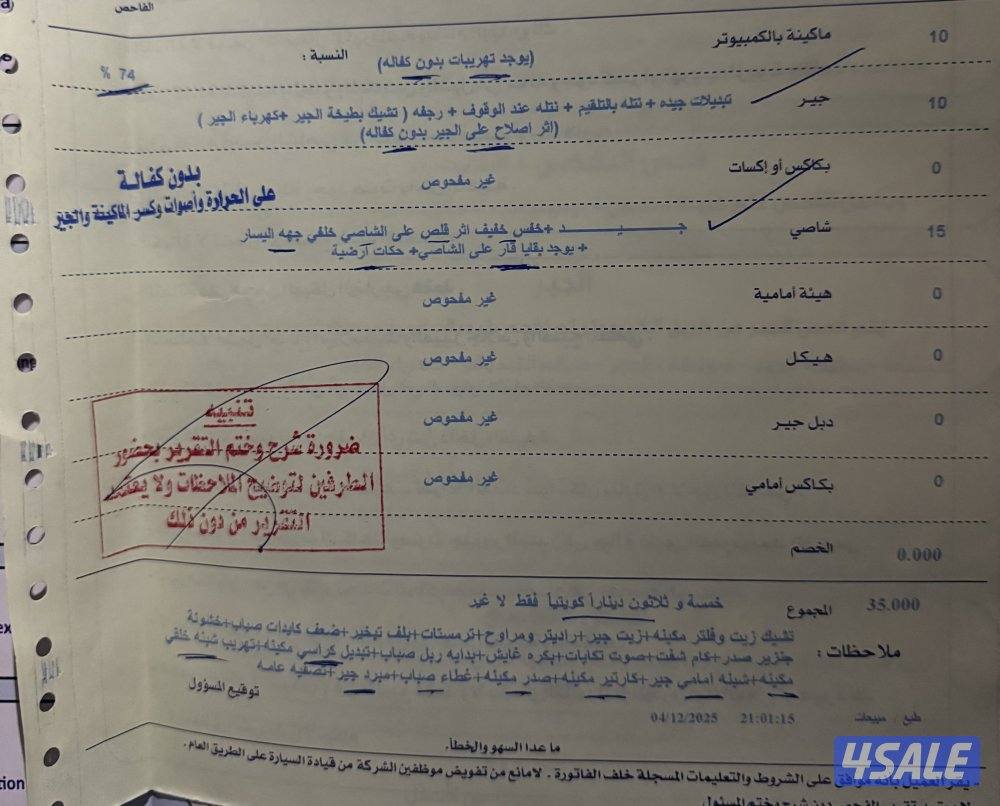 الفاحص
10 ماكينة بالكمبيوتر (يوجد تهريبات بدون كفاله) النسبة : 74 %
10 جير تبديلات جيده + نتله بالتلقيم + نتله عند الوقوف + رجفه ( تشيك بطيخة الجير +كهرباء الجير )
(اثر اصلاح على الجير بدون كفاله)
0 بكاكس أو إكسات غير مفحوص
بدون كفالة
على الحرارة وأصوات وكسر الماكينة والجير
15 شاصي جـــــيـــــد +خفس خفيف اثر قلص على الشاصي خلفي جهه اليسار
+ يوجد بقايا قار على الشاصي+ حكات ارضية
0 هيئة أمامية غير مفحوص
0 هيكل غير مفحوص
0 دبل جير غير مفحوص
0 بكاكس أمامي غير مفحوص
تنبيه
ضرورة شرح وختم التقرير بحضور
الطرفين لتوضيح الملاحظات ولا يعتبر
التقرير من دون ذلك
0.000 الخصم
35.000 المجموع خمسة و ثلاثون ديناراً كويتياً فقط لا غير
ملاحظات : تشيك زيت وفلتر مكينه+زيت جير+راديتر ومراوح+ترمستات+بلف تبخير+ضعف كايدات صباب+خشونة
جنزير صدر+كام شفت+صوت تكايات+بكره غايش+بدايه ربل صباب+تبديل كراسي مكينه+تهريب شبنه خلفي
مكينه+شبنه امامي جير+كارتير مكينه+صدر مكينه+غطاء صباب+مبرد جير+تصفيه عامه
توقيع المسؤول
طبع / مبيعات 21:01:15 04/12/2025
ما عدا السهو والخطأ.
- يقر العميل بأنه موافق على الشروط والتعليمات المسجلة خلف الفاتورة . لامانع من تفويض موظفين الشركة من قيادة السيارة على الطريق العام.
4SALE
ex
tion